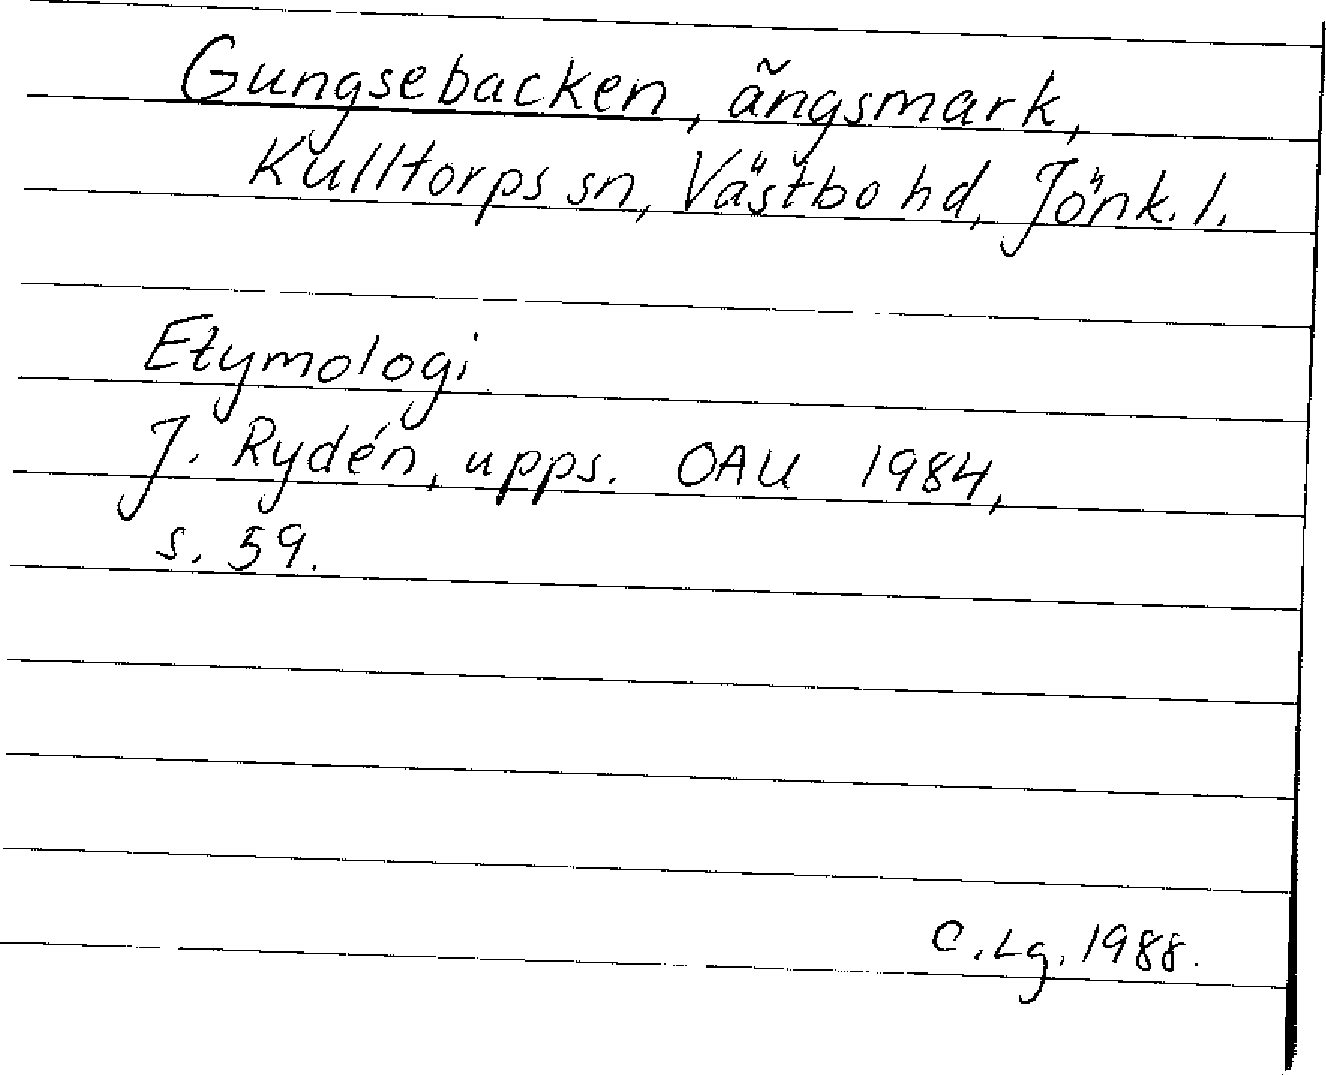 Gungsebacken, ängsmark,
Kulltorps sn, Västbo hd, Jönk. l.
Etymologi
J. Rydén, upps. OAU 1984,
s. 59.
C. Lg. 1988.